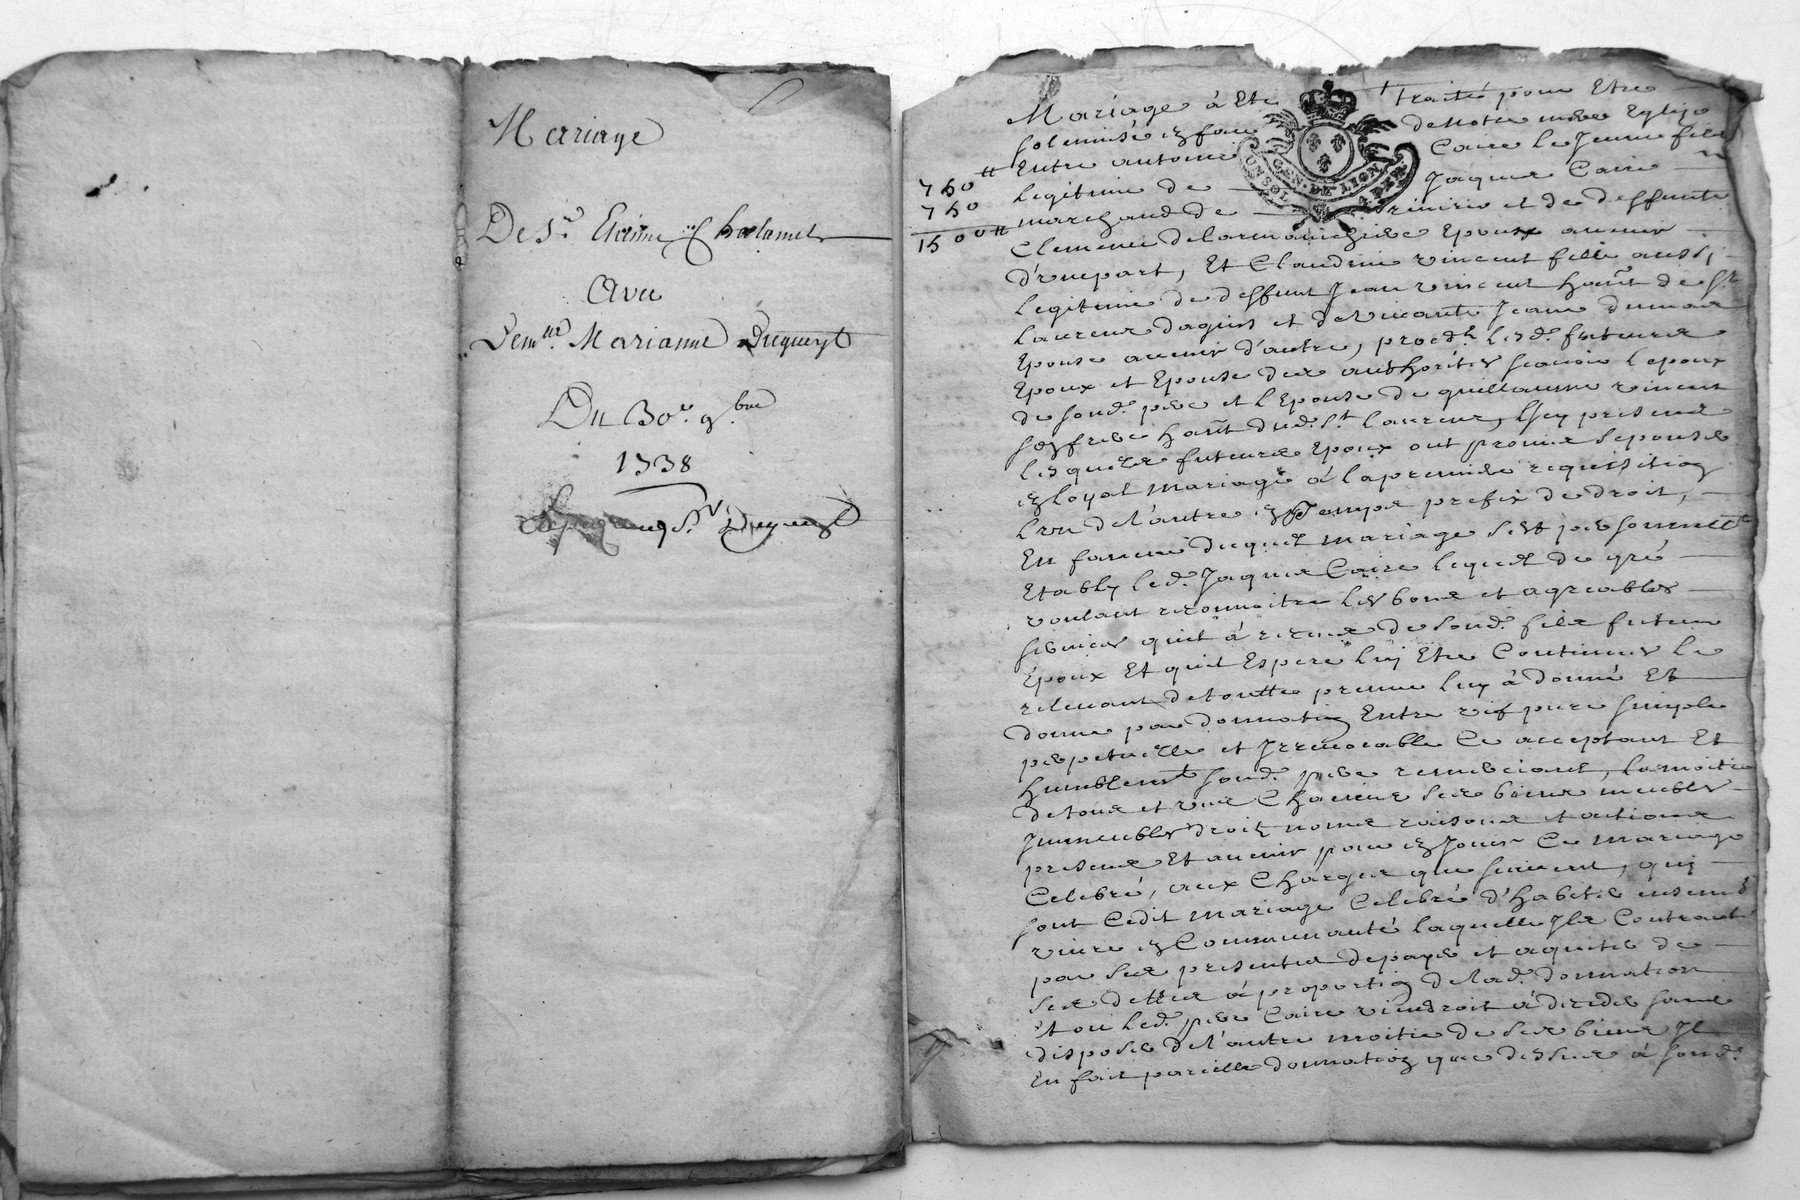 Mariage
De Sr. Etienne Chalamel
Avec
Demlle. Marianne Duqueyt
Du 30e. 9bre
1738
Sr. Duqueyt
Mariage à Eté traité pour Etre
solennisé en face de Notre mère Eglise
Entre antoine Caire le Jeune fils
760 ₶
legitime de Jaques Caire
740
marchand de et de deffunte
1500 ₶
Clemence epoux avenir
d'une part, Et Claudine vincent fille aussi
legitime de deffunt Jean vincent hant. de St.
laurent dagnis et de vivante Jeane dumas
Epouse avenir d'autre, proced. lesd. futurs
Epoux et Epouse des authorités scavoir l'epoux
de sond. père et l'Epouse de guillaume vincent
son frère hant. dud. St. laurent, Icy present
lesquels futurs Epoux ont promis s'epouser
en loyal mariage à la premiere requisition
l'un de l'autre en Temps prefix de droit,
En faveur duquel mariage s'est personellt
Etably led. Jaques Caire lequel de gré
voulant reconnoitre les bons et agreables
services quil à receus de sond. fils futur
Epoux Et quil Espere luy Etre Continués le
relevant de toutte preuve luy à donné Et
donne par donnation Entre vif pure simple
perpetuelle et Irrevocable Ce acceptant Et
humblemt. sond. père remerciant, la moitie
de tous et uns Chacuns ses biens meubles
Immeubles droits noms raisons et actions
presens Et avenir pour en Jouir Ce mariage
Celebré, aux Charges que suivent, qui
sont Cedit mariage Celebré d'habiter ensemb
vivre en Communauté laquelle Ils Contractt
par ses presentes de payer et aquiter de
ses dettes à proportion de lad. donnation
Et ou led. père Caire viendroit à deceder sans
disposer de l'autre moitie de ses biens Il
En fait pareille donnation que dessus à sond.
GEN. DE LION
UN SOL 4 DEN